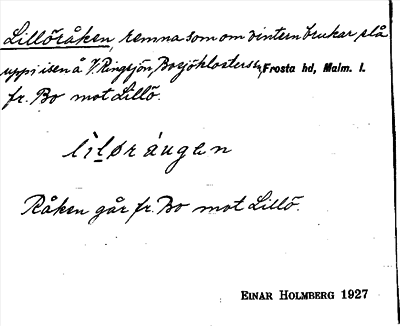 Lillöråken, remna som om vintern brukar slå
upp i isen å V. Ringsjön, Bosjöklosters sn, Frosta hd, Malm. l.
fr. Bo mot Lillö.
lìlør áugen
Råken går fr. Bo mot Lillö.
EINAR HOLMBERG 1927